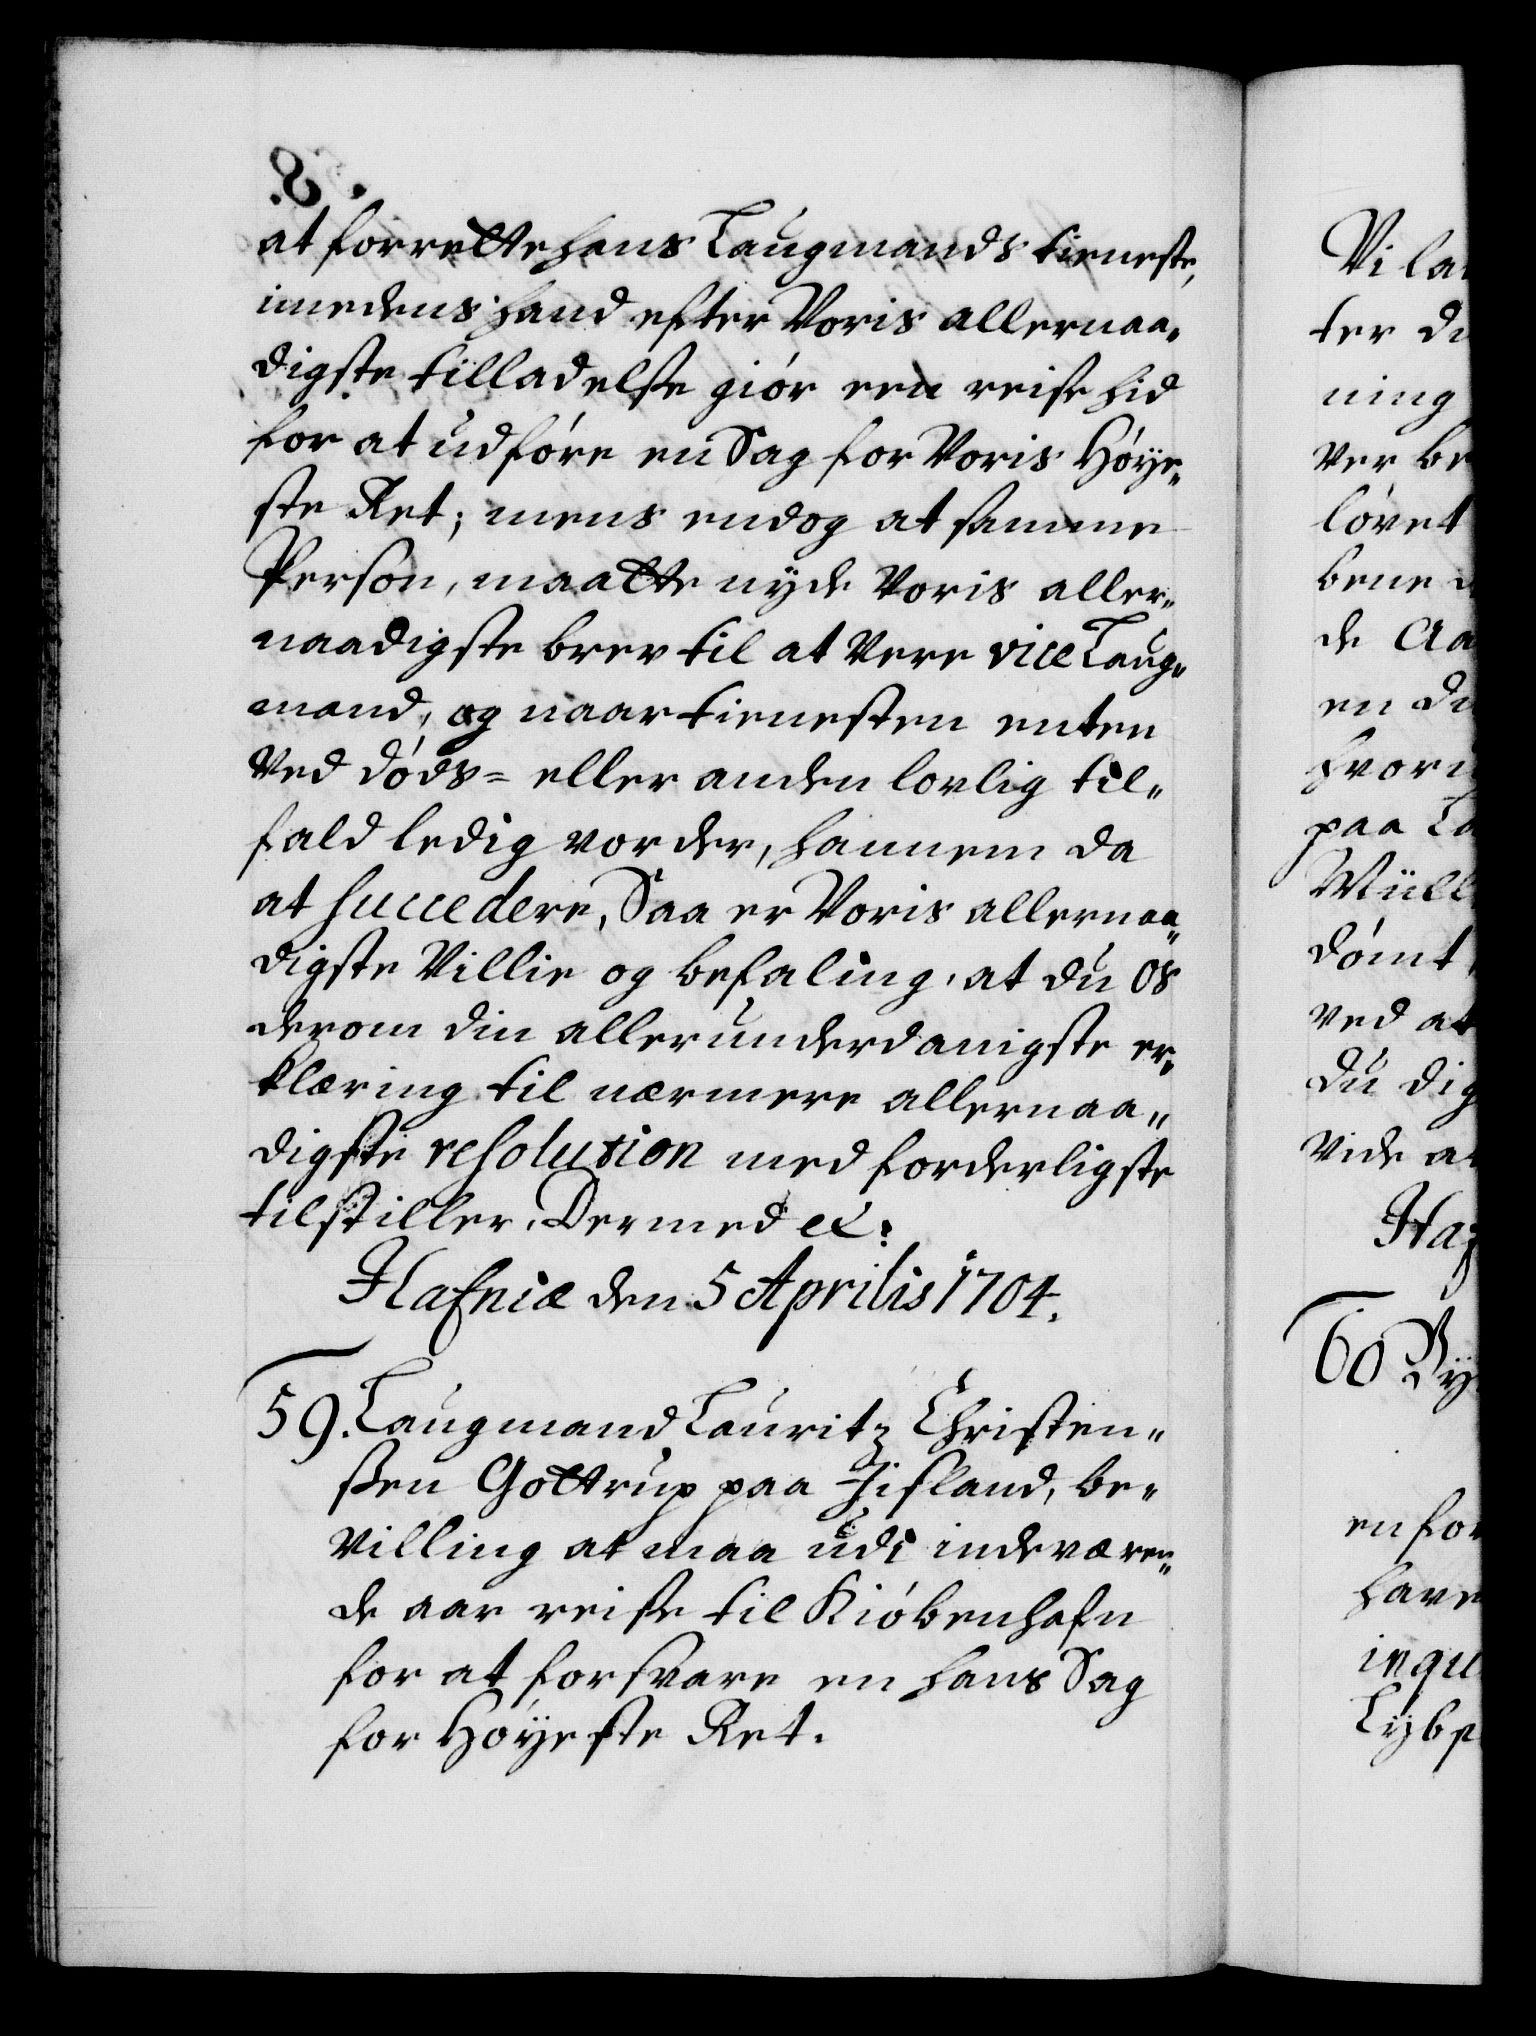 at forrette hans Laugmands tieneste,
imedens hand efter Voris allernaa„
digste tilladelse giör een reise hid
for at udföre en Sag for Voris Höye„
ste Ret; mens endog at samme
Person, maatte nyde Voris aller„
naadigste brev til at Vere vice Laug„
mand, og naar tienesten enten
Ved döds= eller anden lovlig til„
fald ledig vorder, hannem da
at succedere, Saa er Voris allernaa„
digste Villie og befaling, at du Os
derom din allerunderdanigste er„
klæring til nærmere allernaa„
digste resolution med forderligste
tilstiller. Dermed etc:
Hafniæ den 5 Aprilis 1704.
59. Laugmand Lauritz Christen„
sen Gottrup paa Jisland, be„
villing at maa udi indeværen„
de aar reise til Kiöbenhafn
for at forsvare en hans Sag
for Höyeste Ret.
Vi la
ter d
ning
ver be
lövet
bene
de Aa
en d
hvor
paa La
Müll
dömt
ved at
du dig
Vide at
Haf
60 By
en for
have
inqu
Lybs